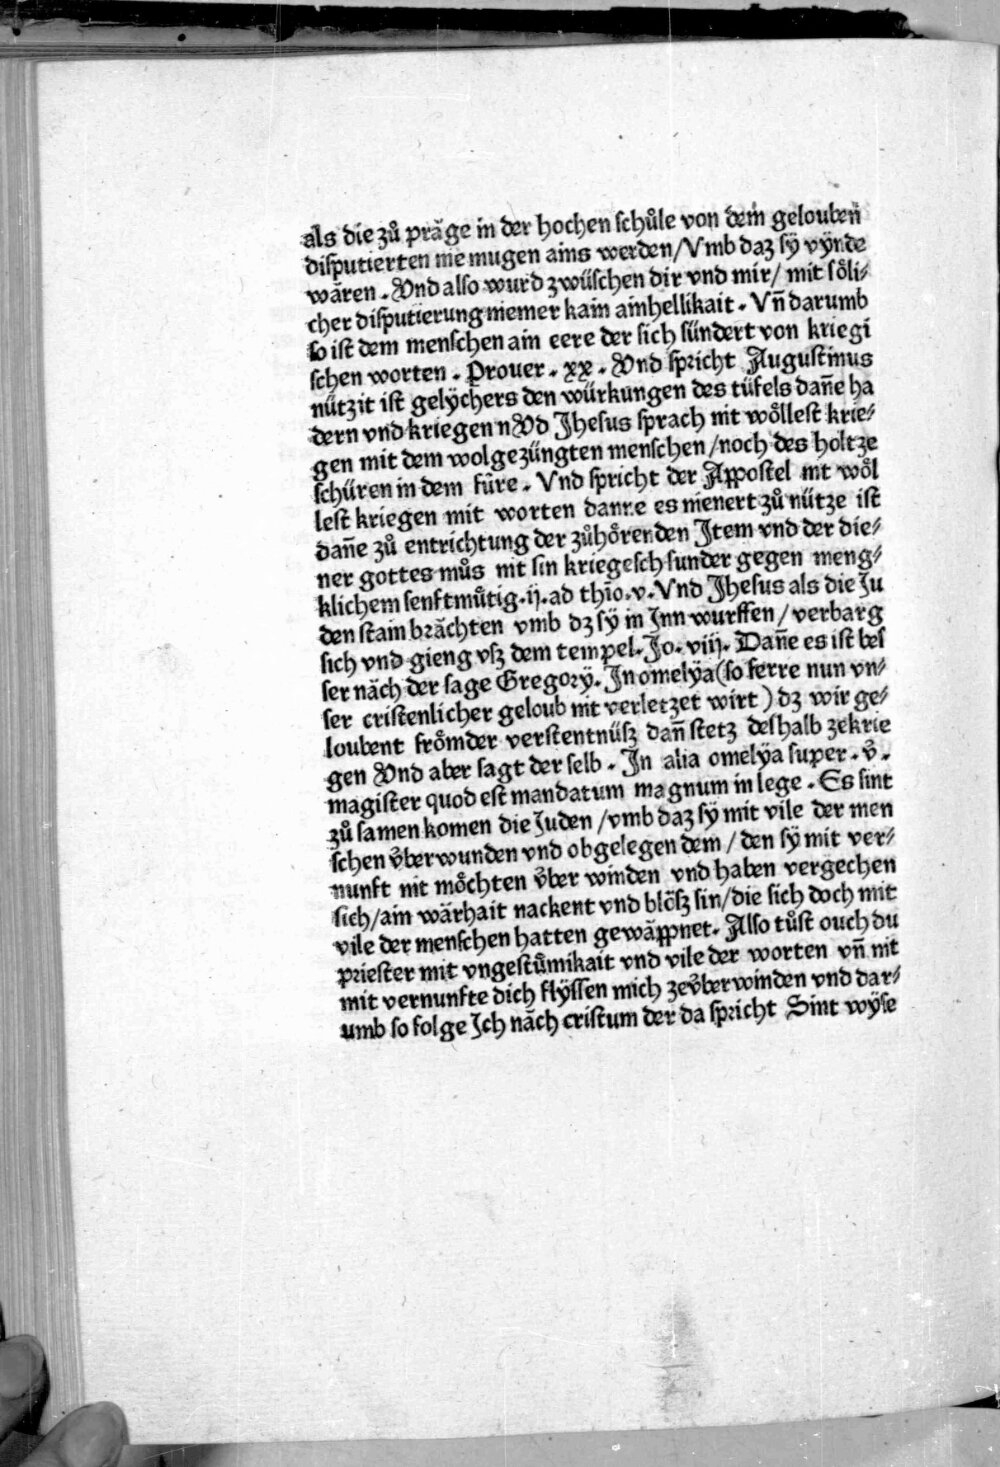 als die zů präge in der hochen schůle von dem gelouben
disputierten nie mugen ains werden/Vmb daz sÿ vÿnde
wären. Vnd also wurd zwüschen dir vnd mir/ mit sȯli⸗
cher disputierung niemer kain ainhellikait. Vn̄ darumb
so ist dem menschen ain eere der sich sündert von kriegi
schen worten. Prouer. xx. Vnd spricht Augustinus
nützit ist gelÿchers den würkungen des tüfels dan̄e ha
dern vnd kriegen n Vd Jhesus sprach nit wöllest krie⸗
gen mit dem wolgezüngten menschen/noch des holtze
schüren in dem fűre. Vnd spricht der Appostel nit wöl
lest kriegen mit worten danne es nienert zů nütze ist
dan̄e zů entrichtung der zůhörenden Jtem vnd der die⸗
ner gottes můs nit sin kriegesch sunder gegen meng⸗
klichem senftmůtig.ij.ad thīo.v.Vnd Jhesus als die Ju
den stain brächten vmb dz sÿ in Jnn wurffen/ verbarg
sich vnd gieng vsz dem tempel.Jo.viij. Dan̄e es ist bes
ser näch der sage Gregorÿ. Jn omelÿa(so ferre nun vn⸗
ser cristenlicher geloub nit verletzet wirt) dz wir ge⸗
loubent frömder verstentnüsz dan̄ stetz deshalb zekrie
gen Vnd aber sagt der selb. Jn alia omelÿa super. v̊.
magister quod est mandatum magnum in lege. Es sint
zů samen komen die Juden /vmb daz sÿ mit vile der men
schen v̊berwunden vnd obgelegen dem/ den sÿ mit ver⸗
nunft nit möchten v̊ber winden vnd haben vergechen
sich/ain wärhait nackent vnd blösz sin/die sich doch mit
vile der menschen hatten gewäppnet. Also tůst ouch du
priester mit vngestůmikait vnd vile der worten vn̄ nit
mit vernunfte dich flÿssen mich zev̊berwinden vnd dar⸗
umb so folge Jch näch cristum der da spricht Sint wÿse